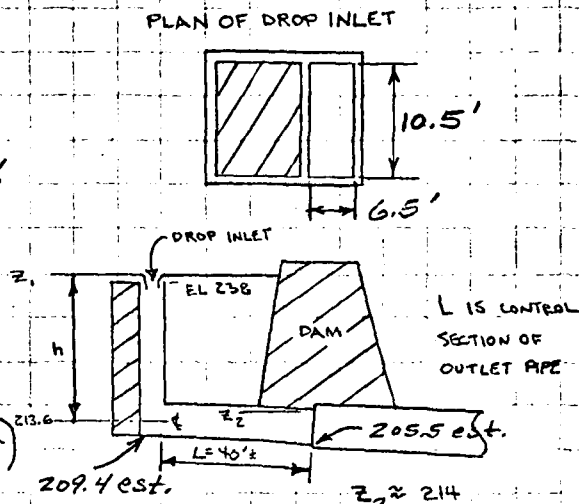 PLAN OF DROP INLET
10.5'
6.5'
DROP INLET
Z₁
EL 238
h
DAM
L IS CONTROL
SECTION OF
OUTLET PIPE
Z₂
213.6
℄
205.5 est.
L=40'±
209.4 est.
Z₂ ≈ 214